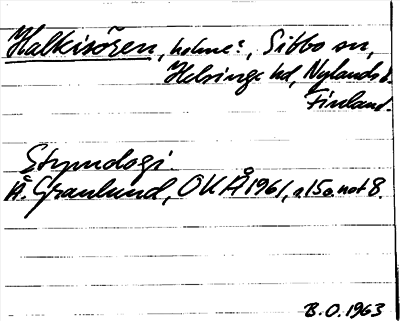 Halkisören, holme?, Sibbo sn,
Helsinge hd, Nylands l.
Finland.
Etymologi.
Å. Granlund, OUÅ 1961, s 15 o. not 8.
B.O. 1963